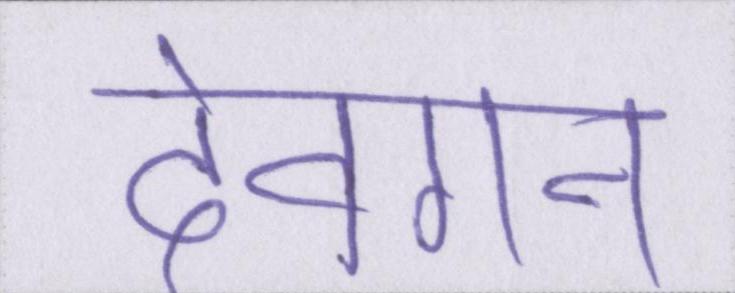 देवगन